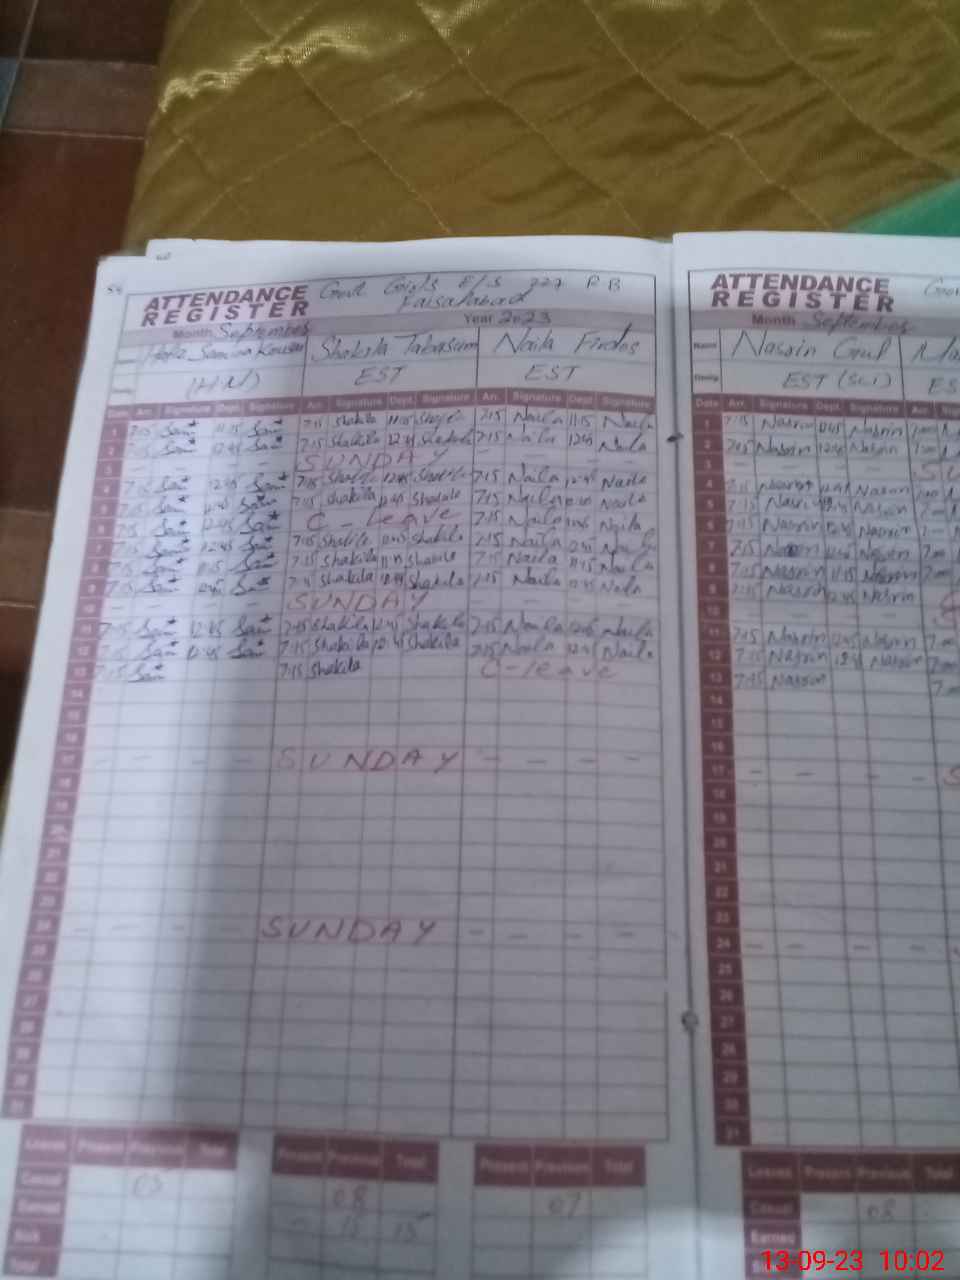 ATTENDANCE REGISTER
Govt Girls E/S 227 RB
Faisalabad
Month September Year 2023
Samina Kousar Shakila Tabasum Naila Firdos
EST EST
Date Arr. Signature Dept. Signature Arr. Signature Dept. Signature Arr. Signature Dept. Signature
1 7:15 11:15 7:15 Shakila 11:15 Shakila 7:15 Naila 11:15 Naila
2 7:15 12:45 7:15 Shakila 12:45 Shakila 7:15 Naila 12:45 Naila
3 – – – SUNDAY – – – –
4 7:15 12:45 7:15 Shakila 12:45 Shakila 7:15 Naila 12:45 Naila
5 7:15 12:45 7:15 Shakila 12:45 Shakila 7:15 Naila Naila
6 7:15 12:45 C - leave 7:15 Naila Naila
7 7:15 12:45 7:15 Shakila 12:45 Shakila 7:15 Naila 12:45 Naila
8 7:15 11:15 7:15 Shakila 11:15 Shakila 7:15 Naila 11:15 Naila
9 7:15 12:45 7:15 Shakila 12:45 Shakila 7:15 Naila 12:45 Naila
10 – – – – SUNDAY – – – –
11 7:15 12:45 7:15 Shakila 12:45 Shakila 7:15 Naila 12:45 Naila
12 7:15 12:45 7:15 Shakila 12:45 Shakila 7:15 Naila 12:45 Naila
13 7:15 7:15 Shakila C - leave
14
15
16
17 – – – – SUNDAY – – – –
18
19
20
21
22
23
24 – – – – SUNDAY – – – –
25
26
27
28
29
30
31
Leaves Present Previous Total Present Previous Total Present Previous Total
Casual 03 08 07
Earned – 15 15
Sick
Total
ATTENDANCE REGISTER
Month September
Name Nasrin Gul
Desig. EST (SCI)
Date Arr. Signature Dept. Signature Arr.
1 7:15 Nasrin 12:45 Nasrin
2 7:15 Nasrin 12:45 Nasrin
3 – – – –
4 7:15 Nasrin 12:45 Nasrin
5 7:15 Nasrin 12:45 Nasrin
6 7:15 Nasrin 12:45 Nasrin
7 7:15 Nasrin 12:45 Nasrin
8 7:15 Nasrin 11:15 Nasrin
9 7:15 Nasrin 12:45 Nasrin
10 – – – –
11 7:15 Nasrin 12:45 Nasrin
12 7:15 Nasrin 12:45 Nasrin
13 7:15 Nasrin
14
15
16
17 – – – –
18
19
20
21
22
23
24 – – – –
25
26
27
28
29
30
31
Leaves Present Previous Total
Casual 08
Earned
13-09-23 10:02